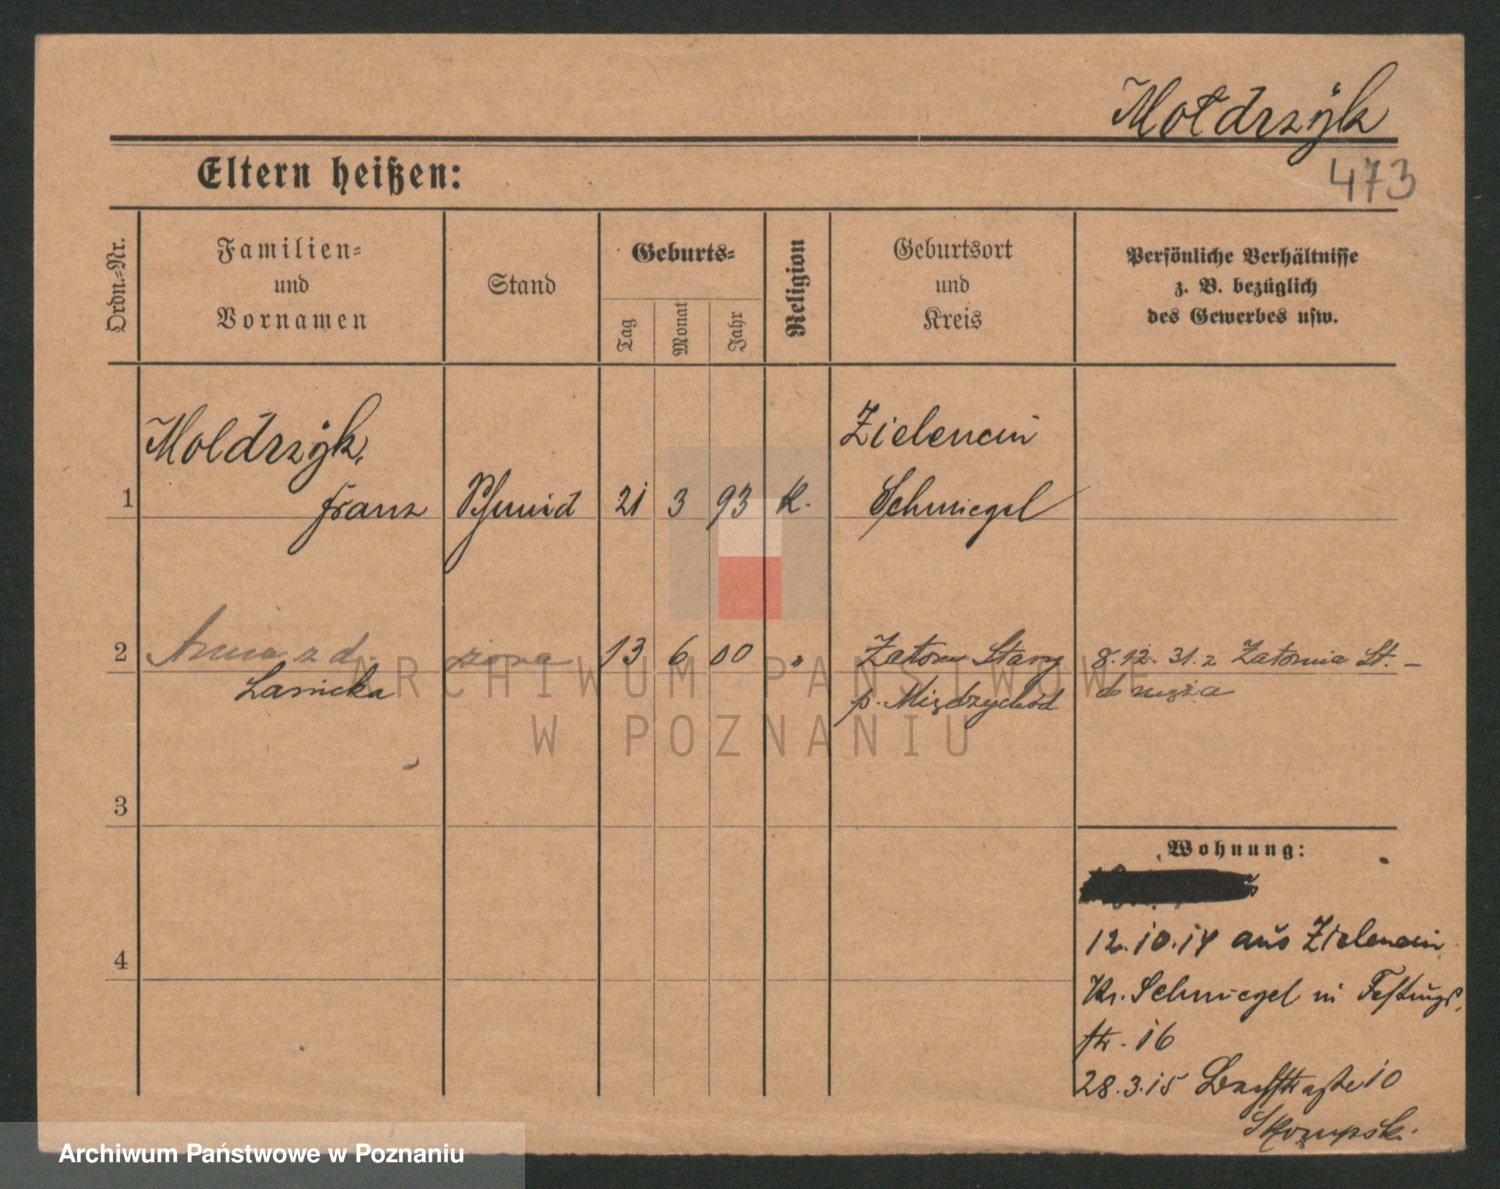 Moldrzyk
473
Eltern heißen:
Ordn.-Nr.
Familien-
und
Vornamen
Stand
Geburts-
Tag
Monat
Jahr
Religion
Geburtsort
und
Kreis
Persönliche Verhältnisse
z. B. bezüglich
des Gewerbes usw.
1
Moldrzyk,
Franz
Schmied
21
3
93
K.
Zielencin
Schmiegel
2
Anna z d.
Lasicka
żona
13
6
00
"
Zatom Stary
p. Międzychód
8.12.31. z Zatomia St. –
do męża
3
4
Wohnung:
12.10.14 aus Zielencin
Kr. Schmiegel in Festungs
str. 16
28.3.15 Bachstraße 10
ARCHIWUM PAŃSTWOWE
W POZNANIU
Archiwum Państwowe w Poznaniu